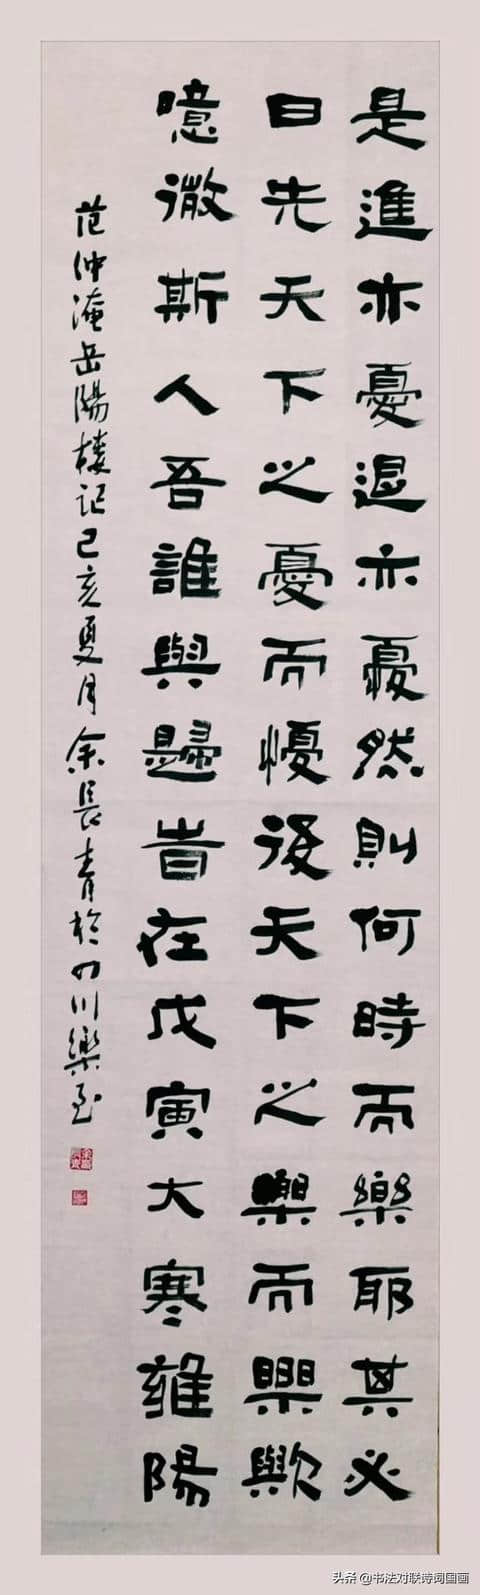 是進亦憂退亦憂然則何時而樂耶其必
曰先天下之憂而懮後天下之樂而樂歟
噫微斯人吾誰與歸旹在戊寅大寒雍陽
范仲淹岳陽樓记己亥夏月余長青於四川樂至
头条@书法对联诗词国画